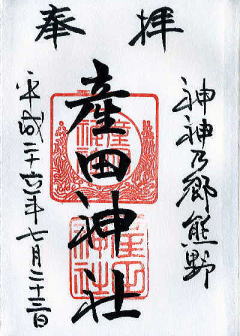 奉拝
神神乃郷熊野
産田神社
平成二十六年七月二十三日